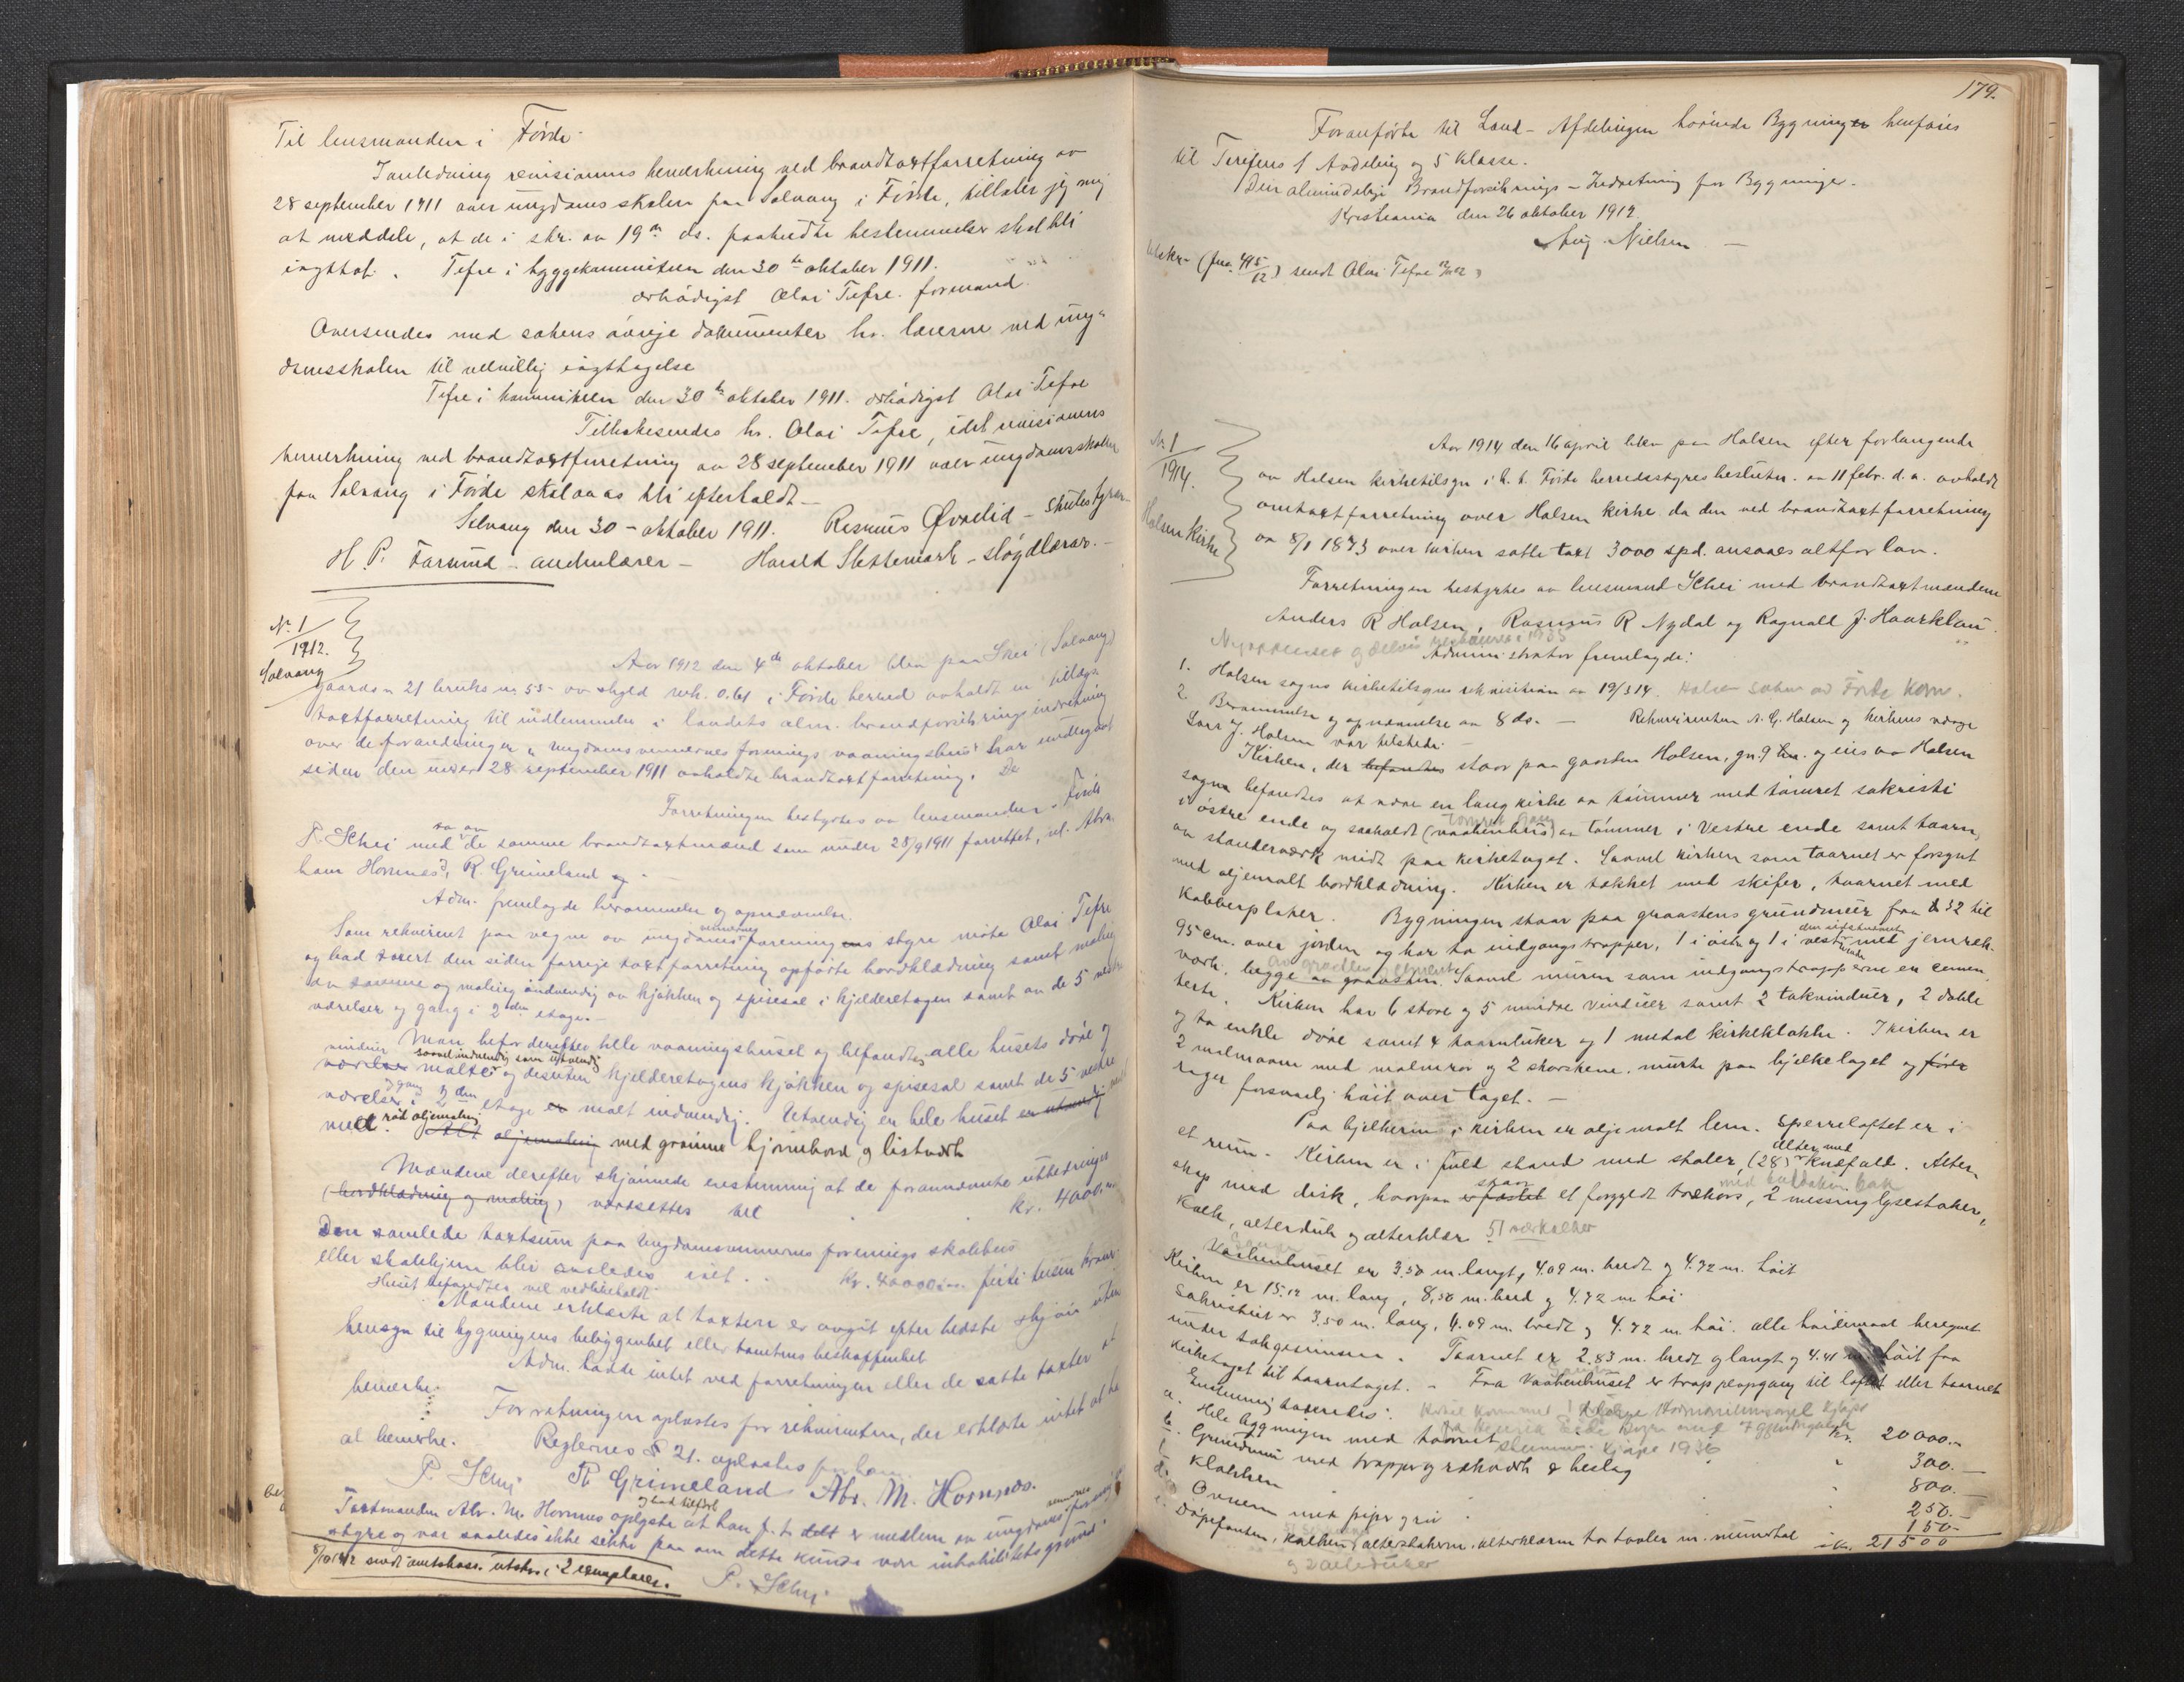 Til lensmanden i Førde
Ianledning revisionens bemerkning ved brandtaxtforretning av
28 september 1911 over ungdomsskolen paa Solvang i Førde, tillater jeg mig
at meddele, at de i skr. av 19de ds. paabudte bestemmelser skal bli
iagttat. Tefre i byggekommiteen den 30te oktober 1911.
ærbødigst Olai Tefre. formand.
Oversendes med sakens øvrige dokumenter hr. lærerne ved ung-
domsskolen til velvillig iagttagelse
Tefre i kommiteen den 30te oktober 1911. ærbødigst Olai Tefre
Tilbakesendes hr. Olai Tefre, idet revisionens
bemerkning ved brandtaxtforretning av 28 september 1911 over ungdomsskolen
paa Solvang i Førde skal bli efterholdt
Solvang den 30 oktober 1911. Rasmus Øvrelid - skulestyrar
H. P. Farsund - andrelærer - Harald Slettemark - sløgdlærar.
Nr. 1
1912.
Solvang
Aar 1912 den 4de oktober blev paa Skei (Solvang)
gaards nr 21 bruks nr 55 av skyld mrk. 0.61 i Førde herred avholdt en tillægs-
taxtforretning til indlemmelse i landets alm. brandforsikringsindretning
over de forandringer ungdomsvennernes forenings vaaningshus har undergaat
siden den under 28 september 1911 avholdte brandtaxtforretning.
Forretningen bestyrtes av lensmanden i Førde
P. Schei med to av de samme brandtaxtmænd som under 28/9 1911 forrettet, nl. Abra-
ham Hornnæs, R. Grimeland
Adm. fremlagde berammelse og opnævnelse.
Som rekvirent paa vegne av ungdomsvennernes forenings styre møtte Olai Tefre
og bad taxert den siden forrige taxtforretning opførte bordklædning samt maling
av samme og maling indvendig av kjøkken og spisesal i kjelderetagen samt av de 5 vestre
værelser og gang i 2den etage.
Man befor derefter hele vaaningshuset og befandtes alle husets døre og
vinduer malte saavel indvendig som utvendig og desuten kjelderetagens kjøkken og spisesal samt de 5 vestre
værelser og gang i 2den etage er malt indvendig. Utvendig er hele huset
med rød oljemaling med grønne hjørnebord og listverk
Mændene derefter skjønnede enstemmig at de forannævnte utbedringer
(bordklædning og maling) værdsettes til kr. 4000.00
Den samlede taxtsum paa Ungdomsvennernes forenings skolehus
eller skolehjem blir saaledes i alt kr. 40000.00 førti tusen kroner.
Huset befandtes vel vedlikeholdt
Mændene erklærte at taxten er avgit efter bedste skjøn uten
hensyn til bygningens beliggenhet eller tomtens beskaffenhet
Adm. hadde intet ved forretningen eller de satte taxter at
bemerke.
Forretningen oplæstes for rekvirenten, der erklærte intet at ha
at bemerke. Reglernes § 21. oplæstes for ham.
P. Schei R Grimeland Abr. M. Hornnæs.
Taxtmanden Abr. M. Hornnes oplyste og bad tilført at han f. t. er medlem av ungdomsvennernes forenings
styre og var saaledes ikke sikker paa om dette kunde være inhabilitetsgrund.
8/10 1912 sendt amtskass. utskr. i 2 exemplarer. P. Schei
179.
Foranførte til Land-Afdelingen hørende Bygninger henføres
til Tarifens 1 Avdeling og 5 Klasse.
Den almindelige Brandforsikrings-Indretning for Bygninger.
Kristiania den 26 oktober 1912
Aug. Nielsen
Utskr. (jnr. 495/12) sendt Olai Tefre
Nr. 1
1914.
Holsen kirke
Aar 1914 den 16 april blev paa Holsen efter forlangende
av Holsen kirketilsyn i h. t. Førde herredsstyres beslutn. av 11 febr. d. a. avholdt
omtaxtforretning over Holsen kirke da den ved brandtaxtforretning
av 8/1 1873 over kirken satte taxt 3000 spd. ansaaes altfor lav.
Forretningen bestyrtes av lensmand Schei med brandtaxtmændene
Anders R Holsen, Rasmus R Nydal og Ragnald J. Haarklau
Nyoppusset og delvis restaurert i 1935
Administrator fremlagde:
1. Holsen sogns kirketilsyns rekvisition av 19/3 14. Holsen sokn av Førde kom.
2. Berammelse og opnævnelse av 8 ds. — Rekvirenten A. G. Holsen og kirkens verge
Lars J. Holsen var tilstede.
Kirken, der befandtes staar paa gaarden Holsen, gn. 9 og eies av Holsen
sogn befandtes at være en langkirke av tømmer med tømret sakristi
i østre ende og saakaldt (vaabenhus) av tømmer i vestre ende samt taarn
av standerverk midt paa kirketaget. Saavel kirken som taarnet er forsynt
med oljemalt bordklædning. Kirken er tækket med skifer, taarnet med
kobberplater. Bygningen staar paa graastens grundmur fra 32 til
95 cm. over jorden og har to indgangstrapper, 1 i øst og 1 i vest, den sidstnævnte med jernræk-
verk, begge av graasten. Saavel muren som indgangstrapperne er cemen-
terte. Kirken har 6 store og 5 mindre vinduer samt 2 takvinduer, 2 doble
og to enkle døre samt 4 taarnluker og 1 metal kirkeklokke. I kirken er
2 malmovne med malmrør og 2 skorstene, murte paa bjelkelaget og
rager forsvarlig høit over taget.
Paa bjelkerne i kirken er oljemalt lem. Sperreloftet er i
et rum. Kirken er i fuld stand med stoler, (28) alter med knæfald. Alter-
skap med disk, hvorpaa staar et forgyldt trækors, 2 messing lysestaker,
kalk, alterduk og alterklær 51 særkalker
Vaabenhuset er 3.50 m. langt, 4.09 m. bredt og 4.72 m. høit
Kirken er 15.12 m. lang, 8,50 m. bred og 4.72 m. høi.
Sakristiet er 3.50 m. lang, 4.09 m. bredt og 4.72 m. høi. alle høidemaal beregnet
under takgesimsen. Taarnet er 2.83 m. bredt og langt og 4.41 m. høit fra
kirketaget til taarntaget. - Fra Vaabenhuset er trappeopgang til loftet eller taarnet
Enstemmig taxeredes:
a. Hele bygningen med taarnet kr. 20000.-
b. Grundmur med trapper og rækverk og beslag " 300.-
c. Klokken " 800.-
d. Ovnene med piper og rør " 250.-
e. Døpefonten, kalken, alterstakerne, alterklærne to tavler m. nummertal 150.-
kr. 21500
og 2 alterduker